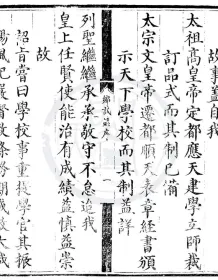 故蓋自我
太祖高皇帝定都應天建學立師載
訂品式而其制已備
太宗文皇帝遷都順天表章經書頒
示天下學校而其制益詳
列聖繼繼承承敬守不怠迨我
皇上任賢使能治有成績益慎益崇
故
詔旨嘗曰學校事重提學官其振